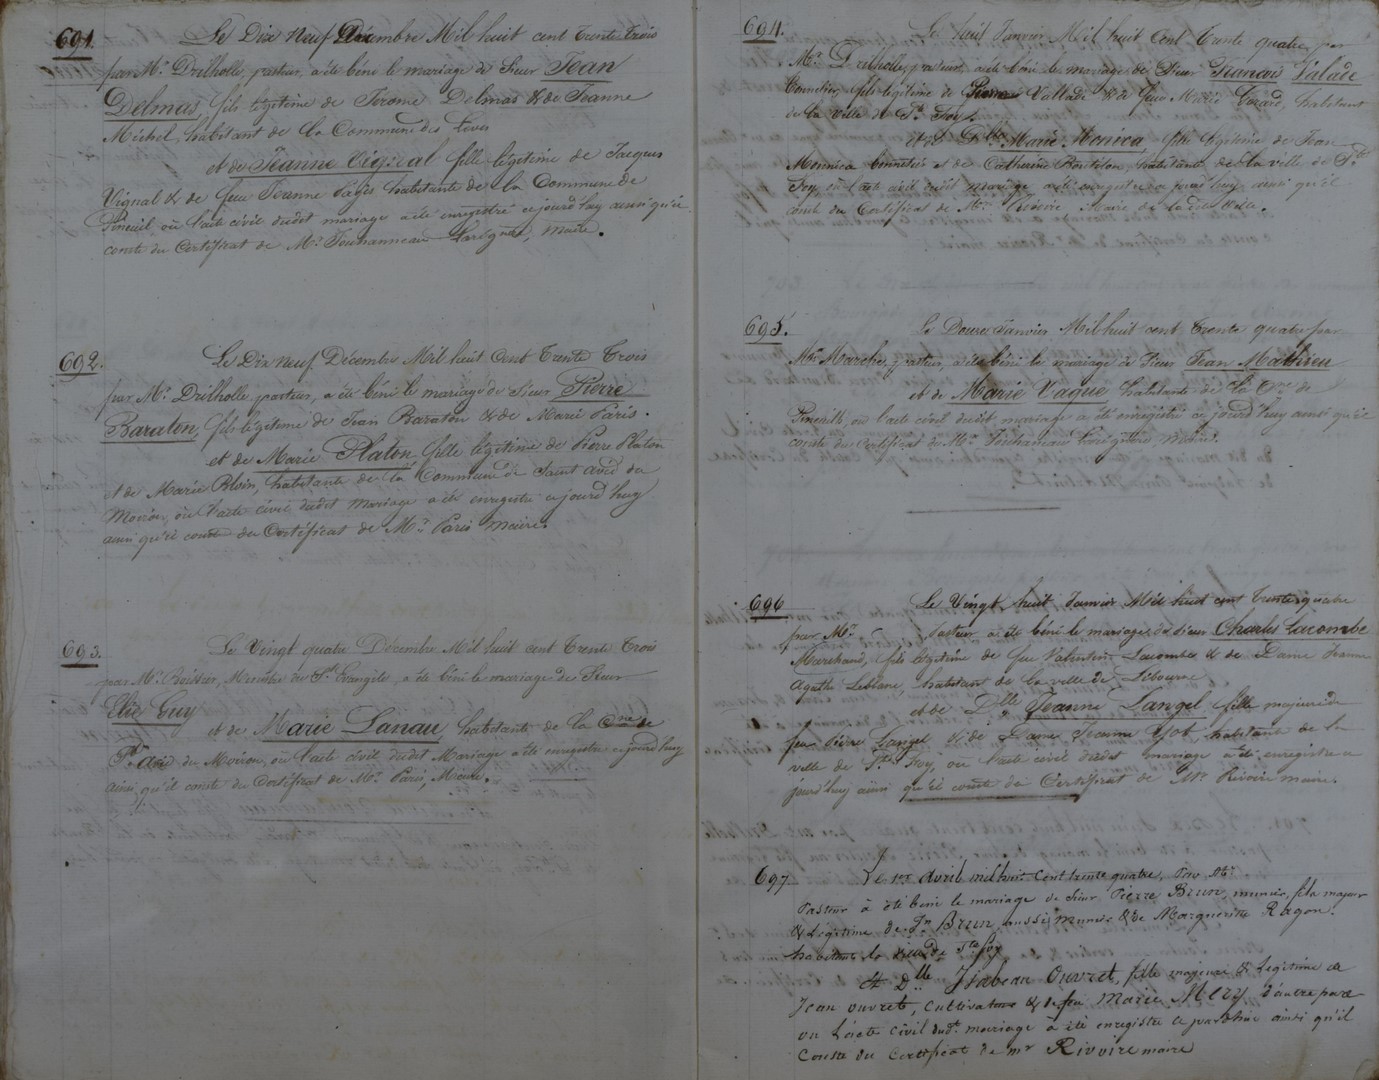 691. Le Dix neuf Décembre Mil huit cent Trente Trois
par Mr. Drilholle, pasteur, a été béni le mariage de Sieur Jean
Delmas, fils légitime de Jerome Delmas & de Jeanne
Michel, habitant de la Commune des Leves
et de Jeanne Vignal fille légitime de Jacques
Vignal & de feu Jeanne Pagès habitante de la Commune de
Pineuil, où l'acte civil dudit mariage a été enregistré cejourd'huy ainsi qu'il
conste du Certificat de Mr. Jouhanneau Larégnère, Maire.
692. Le Dix neuf Décembre Mil huit Cent Trente Trois
par Mr. Drilholle, pasteur, a été béni le mariage de Sieur Pierre
Baraton, fils légitime de Jean Baraton & de Marie Paris.
et de Marie Platon fille légitime de Pierre Platon
et de Marie Blois, habitante de la Commune de Saint avid du
Moiron, où l'acte civil dudit mariage a été enregistré cejourd'huy
ainsi qu'il conste du Certificat de Mr. Paris maire.
693. Le Vingt quatre Décembre Mil huit cent Trente Trois
par Mr. Ministre du St. Evangile, a été béni le mariage de Sieur
Elie Guy
et de Marie Lanau, habitante de la Cne de
St. avid du Moiron, où l'acte civil dudit Mariage a été enregistré cejourd'huy
ainsi qu'il conste du Certificat de Mr. Paris, Maire.
694. Le huit Janvier Mil huit Cent Trente quatre, par
Mr. Drilholle, pasteur, a été béni le mariage de Sieur François Valade
fils légitime de Pierre Vallade & de feue Marie Girard, habitant
de la Ville de Ste. Foy.
et de Dlle Marie Monica fille légitime de Jean
Monnica et de Catherine habitante de la ville de Ste
Foy où l'acte civil dudit mariage a été enregistré ce jourd'huy ainsi qu'il
conste du Certificat de Mr. Rivoire Maire de ladite Ville.
695. Le Douze Janvier Mil huit cent Trente quatre par
Mr. Marche, pasteur, a été béni le mariage de Sieur Jean Mathieu
et de Marie Vague habitante de la Cne de
Pineuilh, où l'acte civil dudit mariage a été enregistré ce jourd'huy ainsi qu'il
conste du Certificat de Mr. Jouhaneau Larégnère Maire.
696 Le Vingt huit Janvier Mil huit cent Trente quatre
par Mr. Pasteur a été béni le mariage de Sieur Charles Lacombe
Marchand, fils légitime de feu Valentin Lacombe & de Dame Jeanne
Agathe Leblanc, habitant de la ville de Libourne
et de Dlle Jeanne Langel fille majeure de
feu Pierre Langel & de Dame Jeanne Jot, habitant de la
ville de Ste Foy, où l'acte civil dudit mariage a été enregistré ce
jourd'huy ainsi qu'il conste du Certificat de Mr Rivoire maire.
697 Le 1er avril mil huit cent trente quatre, par Mr.
Pasteur a été béni le mariage de Sieur Pierre Brun, munier, fils majeur
& légitime de Jn Brun, aussi munier & de Marguerite Ragon.
habitant la de Ste foy
et Dlle Isabeau Ouvret, fille majeure & légitime de
Jean ouvret, cultivateur & de feu Marie Mery d'autre part
ou l'acte civil dudt. mariage a été enregistré ainsi qu'il
conste du certificat de mr Rivoire maire